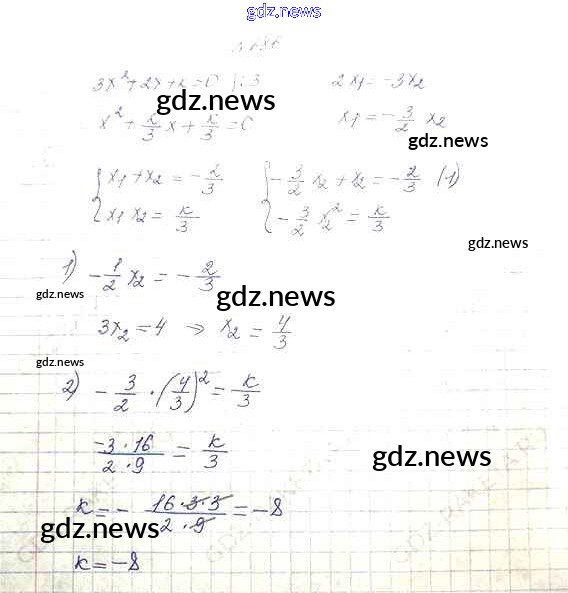 gdz.news
3x² + 2x + k = 0 | : 3
2x₁ = -3x₂
gdz.news
x² + 2/3 x + k/3 = 0
x₁ = -3/2 x₂
gdz.news
{ x₁ + x₂ = -2/3
x₁ x₂ = k/3
{ -3/2 x₂ + x₂ = -2/3 (1)
-3/2 x₂² = k/3
gdz.news
1) -1/2 x₂ = -2/3
gdz.news
gdz.news
3x₂ = 4 ⇒ x₂ = 4/3
gdz.news
2) -3/2 · (4/3)² = k/3
-3·16/2·9 = k/3
gdz.news
k = - 16·3·3/2·9 = -8
gdz.news
k = -8